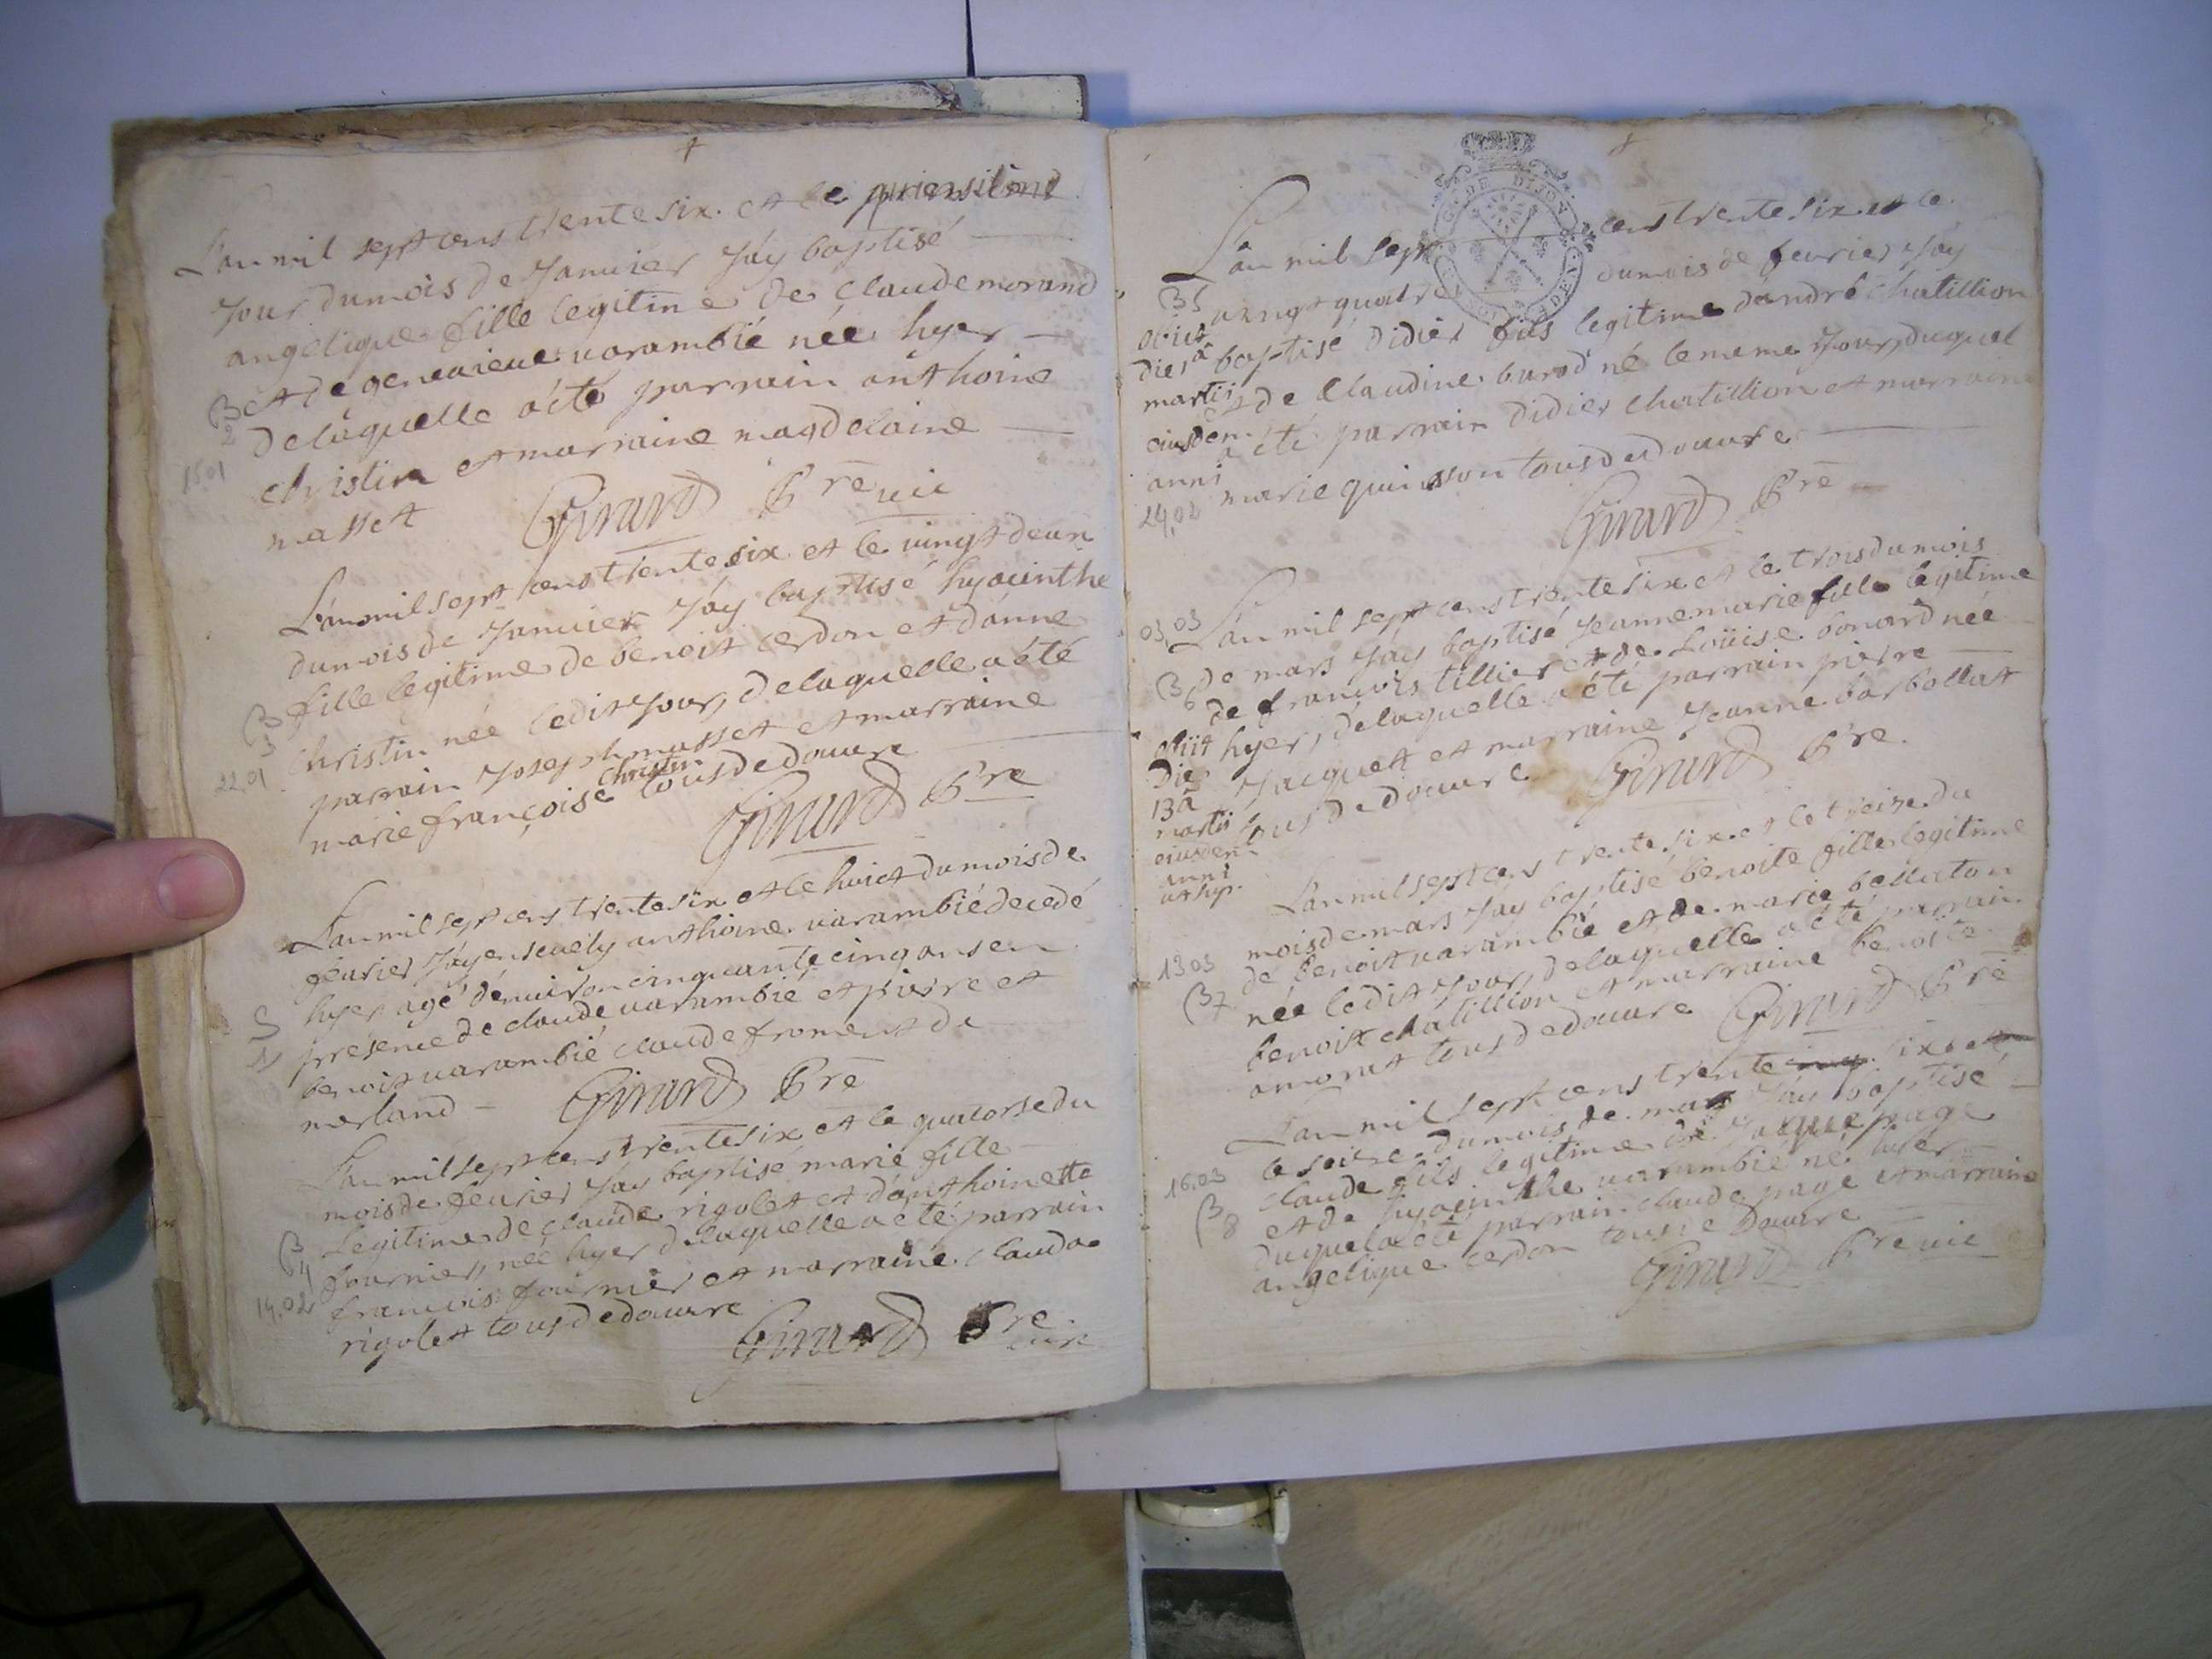 L'an mil sept cens trente six. et le quiensiéme
jour du mois de Janvier J'ay baptisé
angelique fille legitime de claude morand
et de genevieve varambié née hyer
B
2
de laquelle a été parrain anthoine
15.01
christin et marraine magdelaine
masset Girard Pre vic
L'an mil sept cens trente six et le vingt deux
du mois de Janvier J'ay baptisé hyacinthe
fille legitime de benoit cerdon et d'anne
B
3
christin née ledit Jour, de laquelle a été
22.01
parrain Joseph masset et marraine
marie françoise christin tous de douvre
Girard Pre
L'an mil sept cens trente six et le huict du mois de
fevrier J'ay ensevely anthoine varambié decedé
hyer agé d'environ cinquante cinq ans en
S
1
présence de claude varambié et pierre et
benoit varambié claude froment de
merland Girard Pre
L'an mil sept cens trente six et le quatorse du
mois de fevrier J'ay baptisé marie fille
legitime de claude rigolet et d'anthoinette
B
4
fournier, née hyer de laquelle a été parrain
14.02
francois fournier et marraine claudae
rigolet tous de douvre
Girard Pre vic
G. DE DIJON
L'an mil sept cens trente six et le
B5
vingt quatre du mois de fevrier J'ay
obiit
die 2a
martii
eiusdem
anni
24.02
baptisé didier fils legitime d'andré chatillion
et de Claudine burod né le meme Jour, duquel
a été parrain didier chatillion et marraine
marie quinsson tous de douvre
Girard Pre
03.03
L'an mil sept cens trente six et le trois du mois
de mars J'ay baptisé Jeanne marie fille legitime
B
6
de francois tillier et de Loüise bonard née
obiit
die
13a
martii
eiusdem
anni
ut sup.
hyer, de laquelle a été parrain pierre
Jacquet et marraine Jeanne barbollat
tous de douvre Girard Pre.
L'an mil sept cens trente six et le treise du
mois de mars J'ay baptisé benoite fille legitime
13.03
de benoit varambié et de marie bellaton
B7
née ledit Jour, de laquelle a été parrain
benoit chatillion et marraine benoite
amoret tous de douvre Girard Pre
L'an mil sept cens trente six et
le seise du mois de mars J'ay baptisé
16.03
claude fils legitime de Jacque page
B
8
et de hyacinthe varambié né hyer
duquel a été parrain claude page et marraine
angelique cerdon tous de douvre
Girard Pre vic